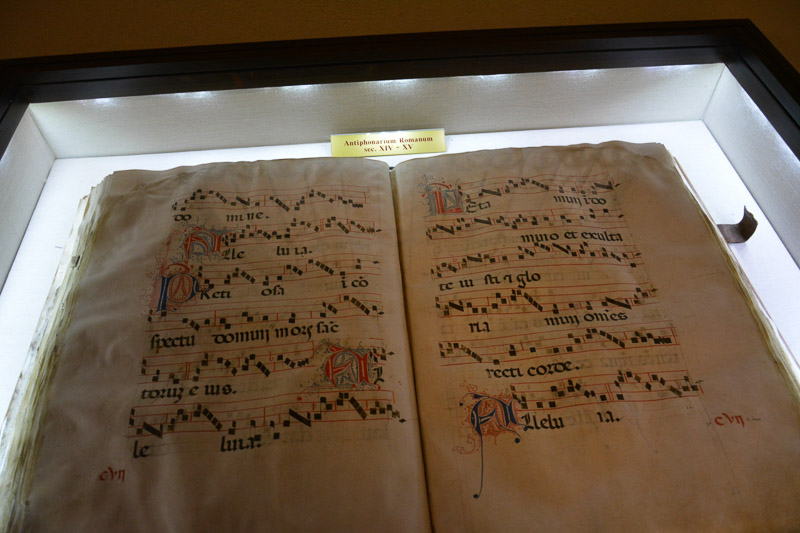 Antiphonarium Romanum
sec. XIV - XV
do mi ne.
Alle lu ia.
Preti osa i co
spectu domini mors sāc
toruʒ e ius.
Al
le lu i a.
cvii
Leta mini i do
mino et exulta
te iu sti ⁊ glo
ria mini om̄es
recti corde.
Allelu i a.
cvii